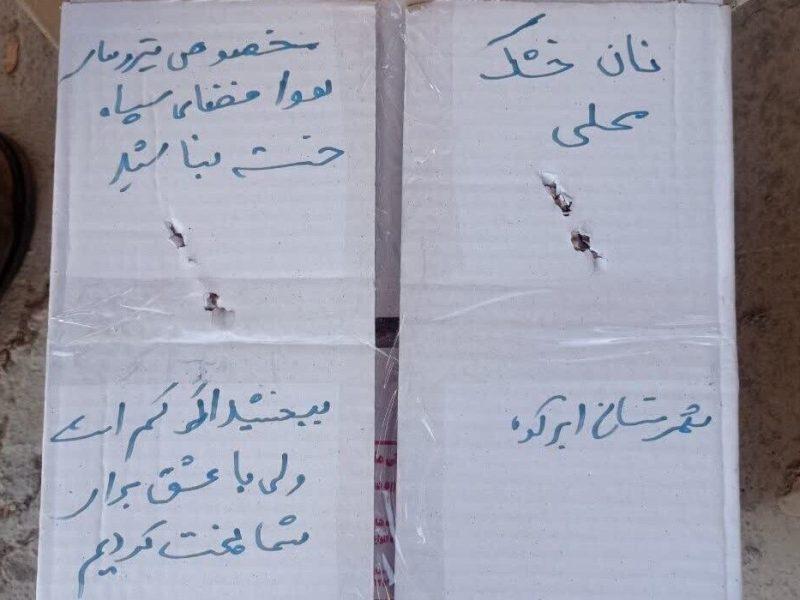 نان خشک
محلی
مخصوص نیروهای
هوا فضای سپاه
خسته نباشید
شهرستان ابرکوه
ببخشید اگر کم است
ولی با عشق برای
شما پخت کردیم